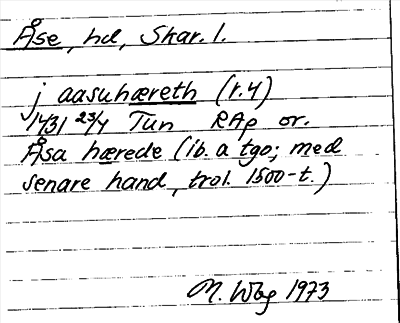 Åse, hd, Skar. l.
j aasuhæreth (r. 4)
1431 23/4 Tun RAp or.
Åsa hærede (ib. a tgo; med
senare hand, trol. 1500-t.)
M. Wbg 1973